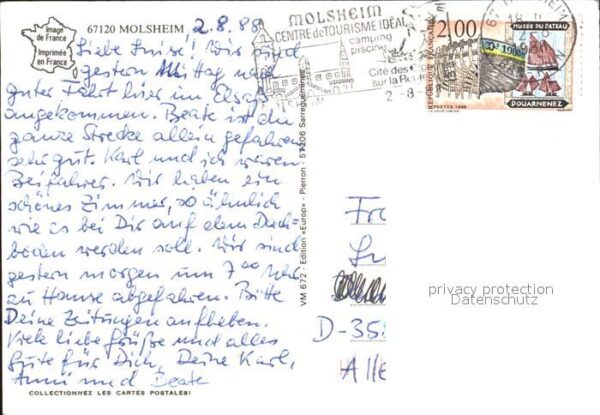 Image
de
France
67120 MOLSHEIM
2.8.88
Imprimée
en France
Liebe Luise! Wir sind
gestern Mittag nach
guter Fahrt hier im Elsaß
angekommen. Beate ist die
ganze Strecke allein gefahren
sehr gut. Karl und ich waren
Beifahrer. Wir haben ein
schönes Zimmer, so ähnlich
wie es bei Dir auf dem Dach-
boden werden soll. Wir sind
gestern morgen um 7 00 Uhr
zu Hause abgefahren. Bitte
Deine Zeitungen aufheben.
Viele liebe Grüße und alles
Gute für Dich, Deine Karl,
Anni und Beate
COLLECTIONNEZ LES CARTES POSTALES!
VM 672 - Edition «Europ» - Pierron - 57206 Sarreguemines
MOLSHEIM
CENTRE de TOURISME IDÉAL
camping
piscine
Cité des
sur la
2-8-
REPUBLIQUE FRANÇAISE
2,00
MUSEE DU BATEAU
DOUARNENEZ
POSTES 1988
67 MOLSHEIM
18 H
Fr
D-35
Alle
privacy protection
Datenschutz